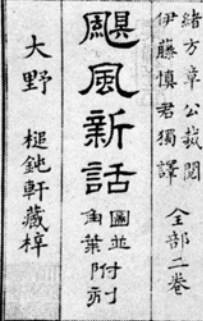 緒方章公裁閲
伊藤慎君獨譯
全部二巻
颶風新話
圖並附刻
角葉
大野
槌鈍軒藏梓